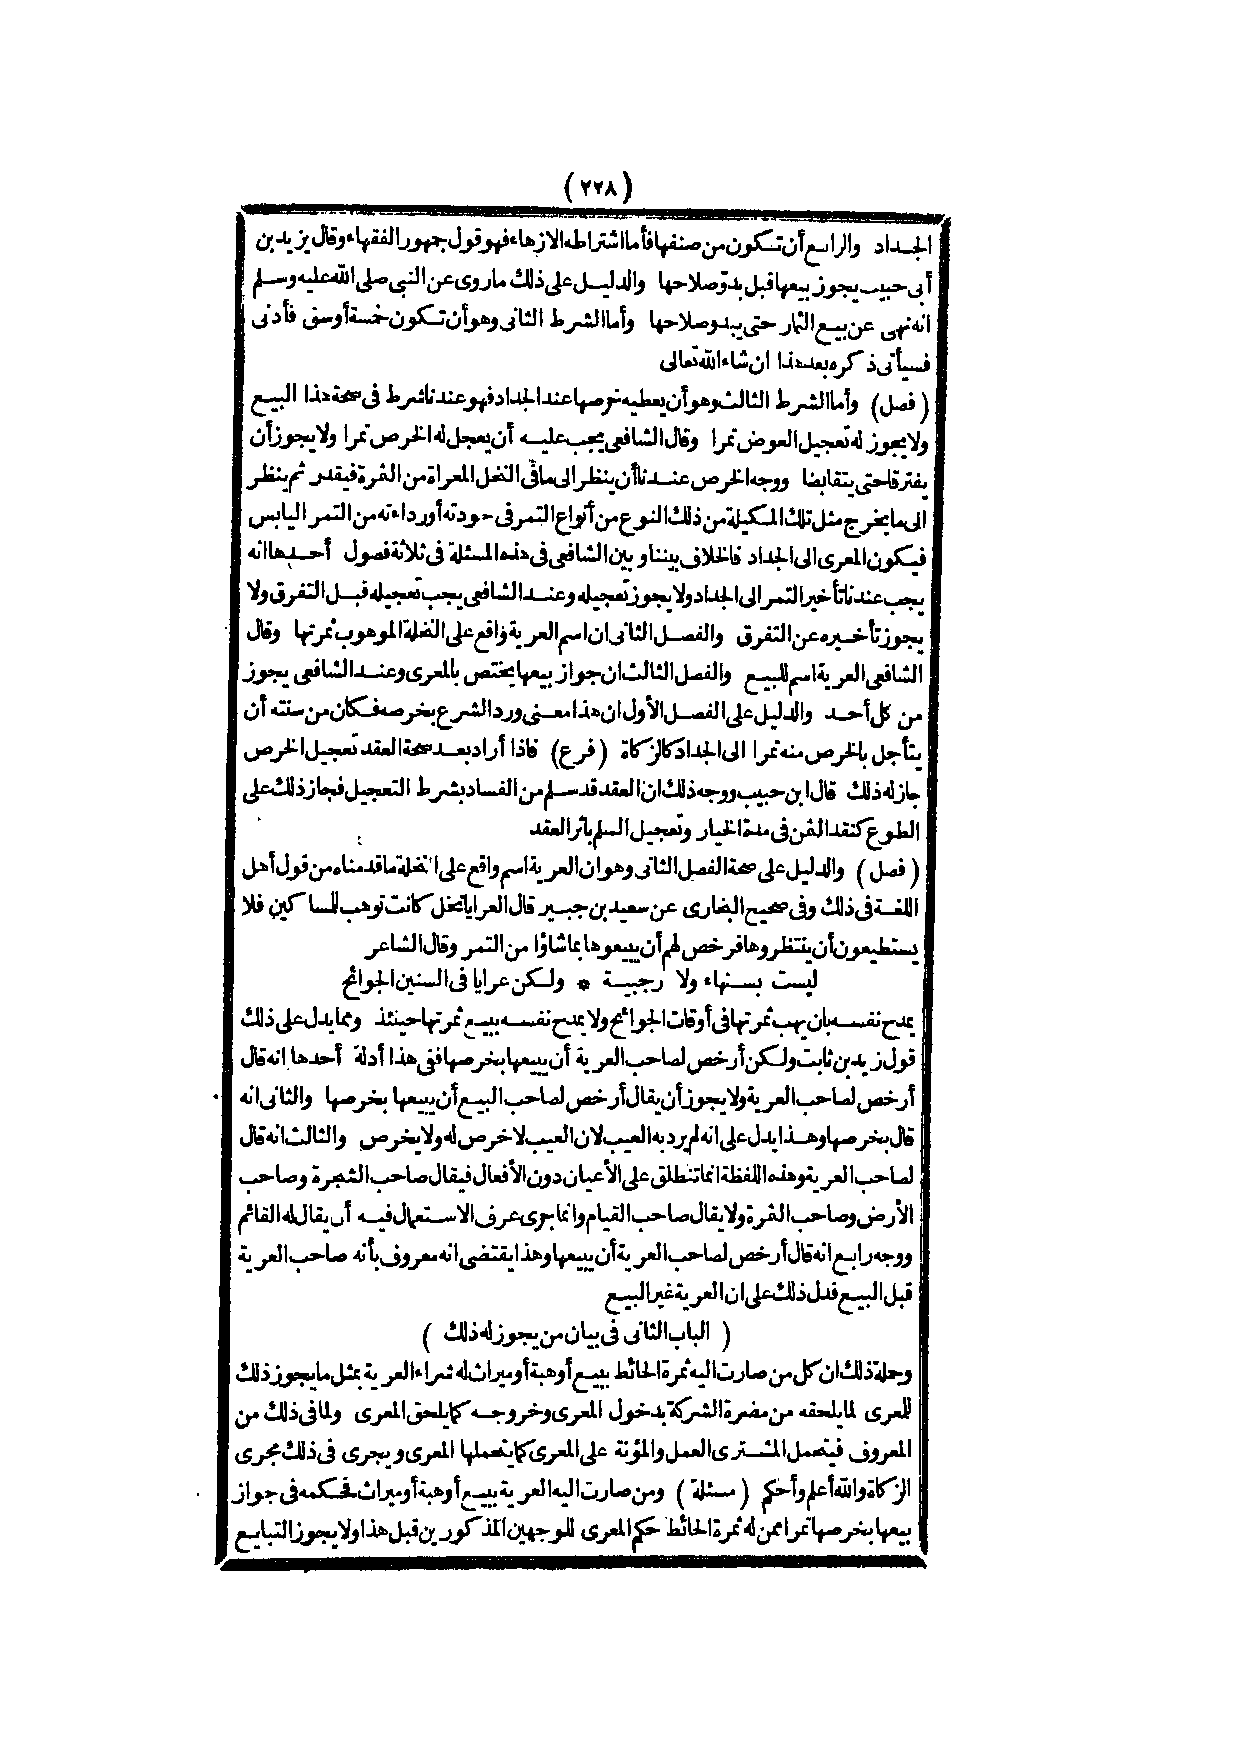 (٢٢٨)
الجداد والرابع أن تكون من صنفها فأما اشتراطه الازهاء فهو قول جمهور الفقهاء وقال يزيد بن
أبى حبيب يجوز بيعها قبل بدو صلاحها والدليل على ذلك ماروى عن النبى صلى الله عليه وسلم
انه نهى عن بيع الثمار حتى يبدو صلاحها وأما الشرط الثانى وهو أن تكون خمسة أوسق فأدنى
فسيأتى ذكره بعد هذا ان شاء الله تعالى
(فصل) وأما الشرط الثالث وهو أن يعطيه خرصها عند الجداد فهو عندنا شرط فى صحة هذا البيع
ولا يجوز له تعجيل العوض تمرا وقال الشافعى يجب عليه أن يعجل له الخرص تمرا ولا يجوز أن
يفترقا حتى يتقابضا ووجه الخرص عندنا أن ينظر الى ما فى النخل المعراة من الثمرة فيقدر ثم ينظر
الى ما يخرج مثل تلك المكيلة من ذلك النوع من أنواع التمر فى جودته أورداءته من التمر اليابس
فيكون المعرى الى الجداد فالخلاف بيننا و بين الشافعى فى هذه المسئلة فى ثلاثة فصول أحدها انه
يجب عندنا تأخير التمر الى الجداد ولا يجوز تعجيله وعند الشافعى يجب تعجيله قبل التفرق ولا
يجوز تأخيره عن التفرق والفصل الثانى ان اسم العرية واقع على النخلة الموهوب ثمرتها وقال
الشافعى العرية اسم للبيع والفصل الثالث ان جواز بيعها يختص بالمعرى وعند الشافعى يجوز
من كل أحد والدليل على الفصل الأول ان هذا معنى ورد الشرع بخرصه فكان من سنته أن
يتأجل بالخرص منه تمرا الى الجداد كالزكاة (فرع) فاذا أراد بعد صحة العقد تعجيل الخرص
جاز له ذلك قال ابن حبيب ووجه ذلك ان العقد قد سلم من الفساد بشرط التعجيل فجاز ذلك على
الطوع كنقد الثمن فى مدة الخيار وتعجيل السلم بأثر العقد
(فصل) والدليل على صحة الفصل الثانى وهو ان العرية اسم واقع على النخلة ما قدمناه من قول أهل
اللغة فى ذلك وفى صحيح البخارى عن سعيد بن جبير قال العرايا نخل كانت توهب للمساكين فلا
يستطيعون أن ينتظروها فرخص لهم أن يبيعوها بما شاؤا من التمر وقال الشاعر
ليست بسنهاء ولا رجبية * ولكن عرايا فى السنين الجوائح
يمدح نفسه بان يهب ثمرتها فى أوقات الجوائح ولا يمدح نفسه ببيع ثمرتها حينئذ ومما يدل على ذلك
قول زيد بن ثابت ولكن أرخص لصاحب العرية أن يبيعها بخرصها ففى هذا أدلة أحدها انه قال
أرخص لصاحب العرية ولا يجوز أن يقال أرخص لصاحب البيع أن يبيعها بخرصها والثانى انه
قال بخرصها وهذا يدل على انه لم يرد به العيب لان العيب لا خرص له ولا يخرص والثالث انه قال
لصاحب العرية وهذه اللفظة انما تنطلق على الأعيان دون الأفعال فيقال صاحب الشجرة وصاحب
الأرض وصاحب الثمرة ولا يقال صاحب القيام وانما جرى عرف الاستعمال فيه أن يقال له القائم
ووجه رابع انه قال أرخص لصاحب العرية أن يبيعها وهذا يقتضى انه معروف بأنه صاحب العرية
قبل البيع فدل ذلك على ان العرية غير البيع
( الباب الثانى فى بيان من يجوز له ذلك )
وجملة ذلك ان كل من صارت اليه ثمرة الحائط ببيع أو هبة أو ميراث له شراء العرية بمثل ما يجوز ذلك
للمعرى لما يلحقه من مضرة الشركة بدخول المعرى وخروجه كما يلحق المعرى ولما فى ذلك من
المعروف فيتحمل المشترى العمل والمؤنة على المعرى كما يتحملها المعرى ويجرى فى ذلك مجرى
الزكاة والله أعلم وأحكم (مسئلة) ومن صارت اليه العرية ببيع أو هبة أو ميراث فحكمه فى جواز
بيعها بخرصها تمرا ممن له ثمرة الحائط حكم المعرى للوجهين المذكورين قبل هذا ولا يجوز التبايع